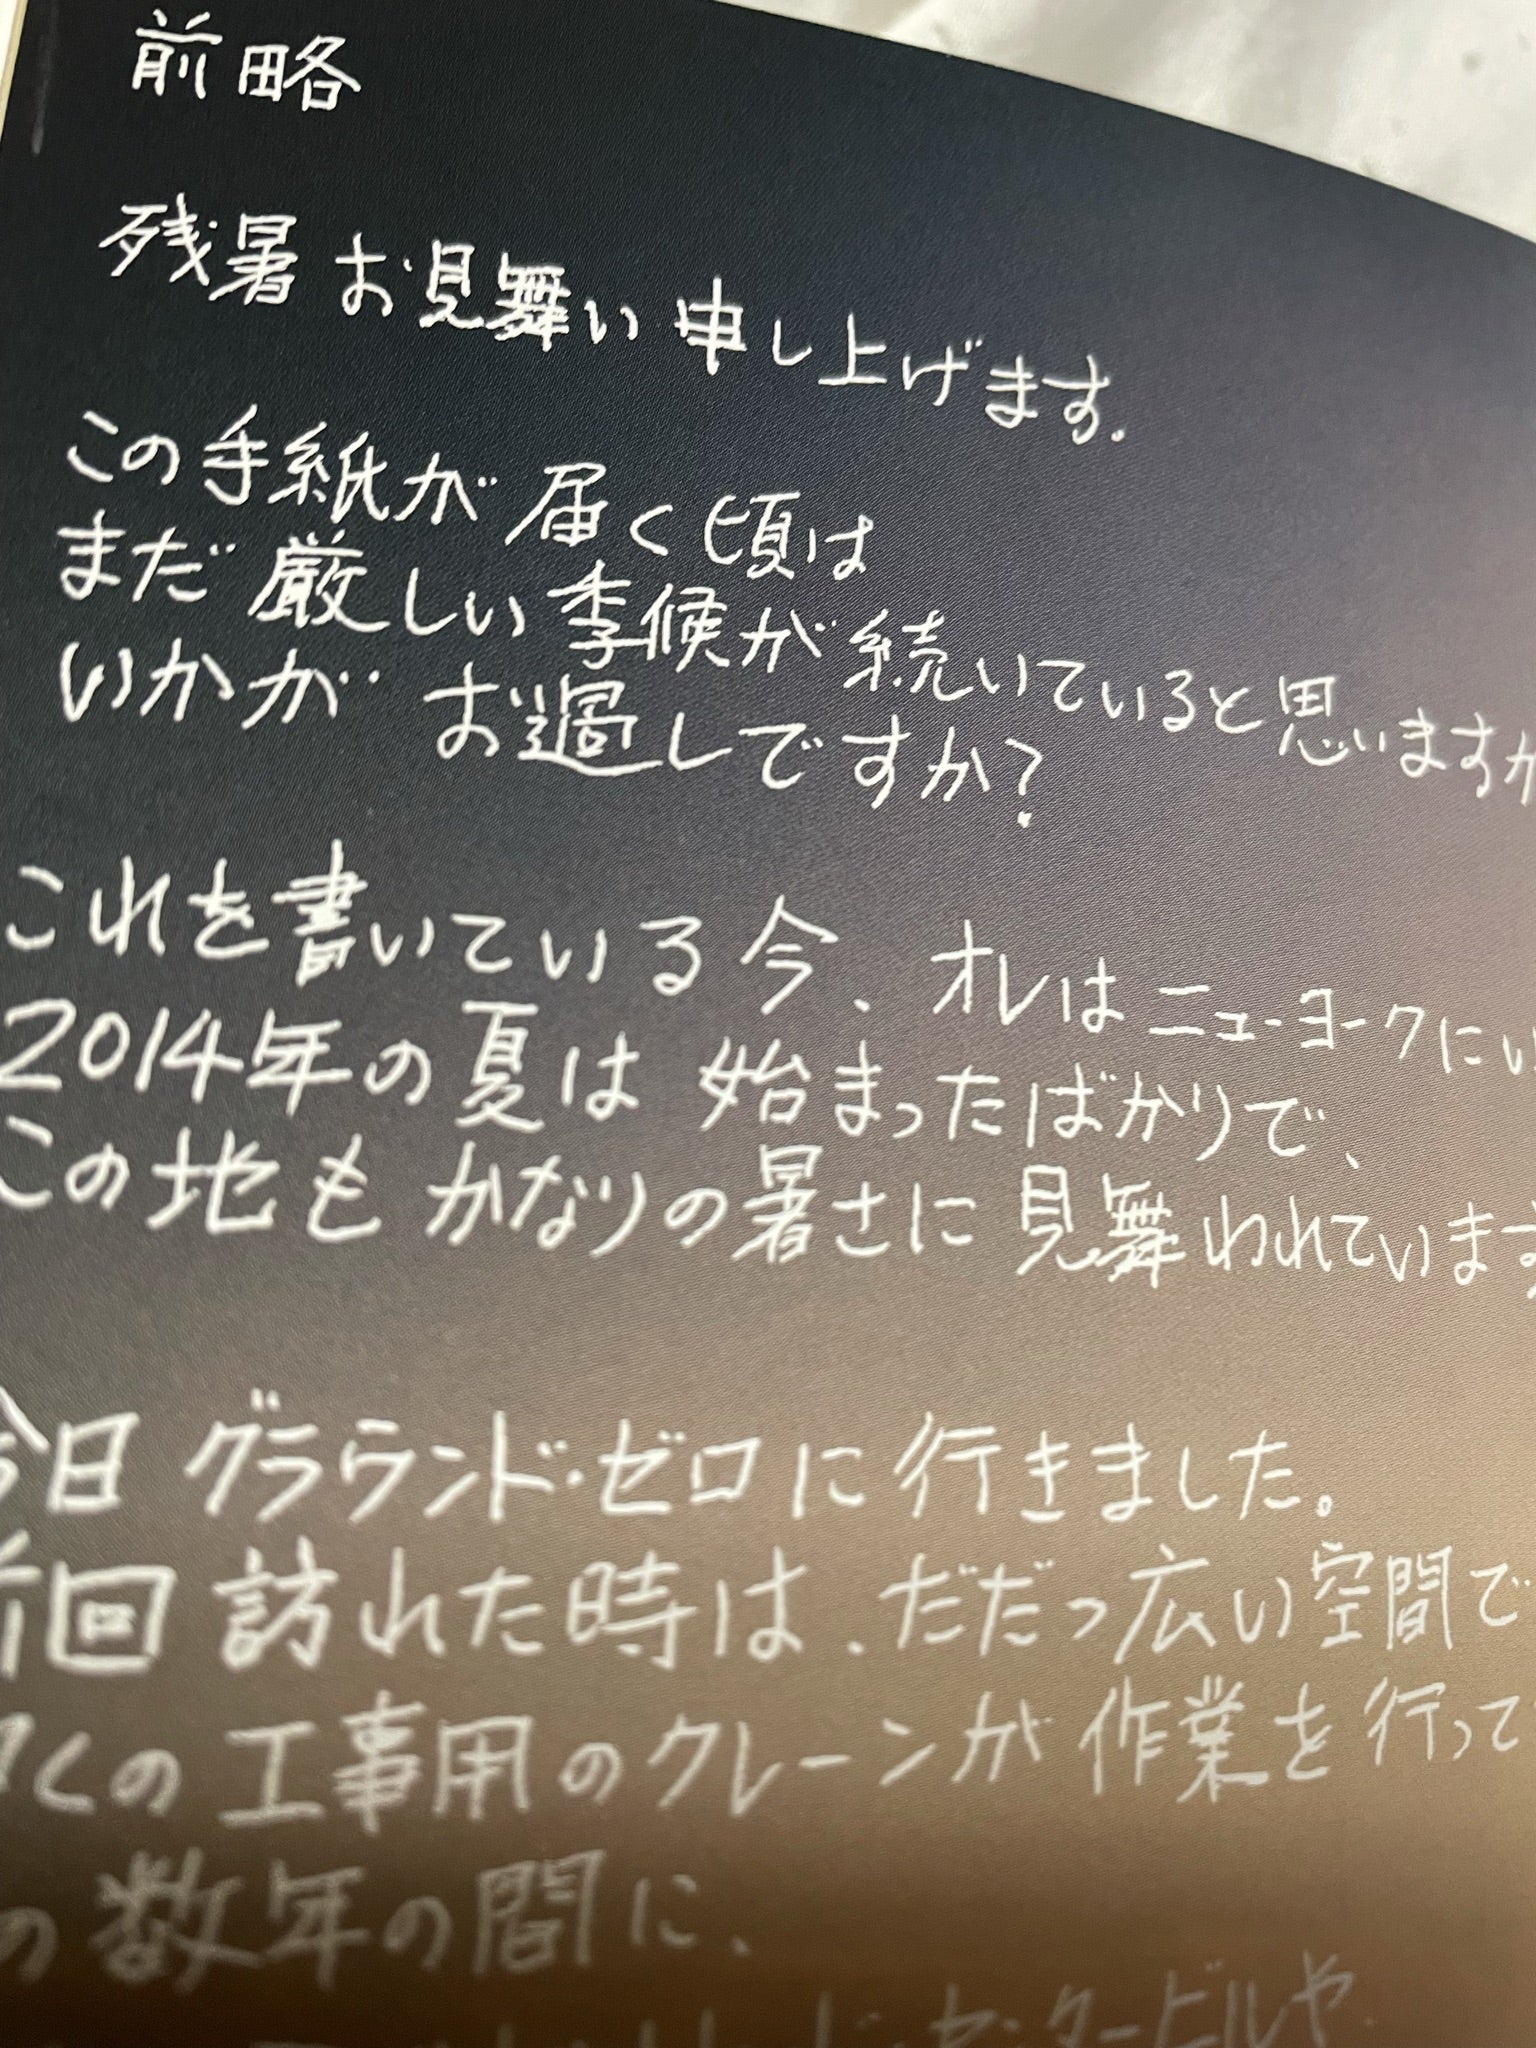 前略
残暑お見舞い申し上げます.
この手紙が届く頃は
まだ厳しい季候が続いていると思いますが
いかがお過しですか?
これを書いている今、オレはニューヨークにい
2014年の夏は始まったばかりで、
この地もかなりの暑さに見舞われています
今日グラウンド・ゼロに行きました。
前回訪れた時は、だだっ広い空間で
くの工事用のクレーンが作業を行って
の数年の間に、
ド・センタービルや